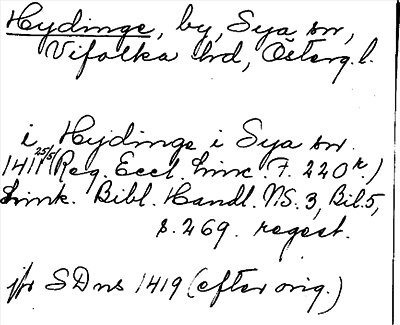 Hydinge, by, Sya sn,
Vifolka hd, Österg. l.
i Hydinge i Sya sn.
1411 25/5 (Reg. Eccl. Linc. F. 220 r.)
Link. Bibl. Handl. NS. 3, Bil. 5,
s. 269. regest.
jfr SDns 1419 (efter orig.)